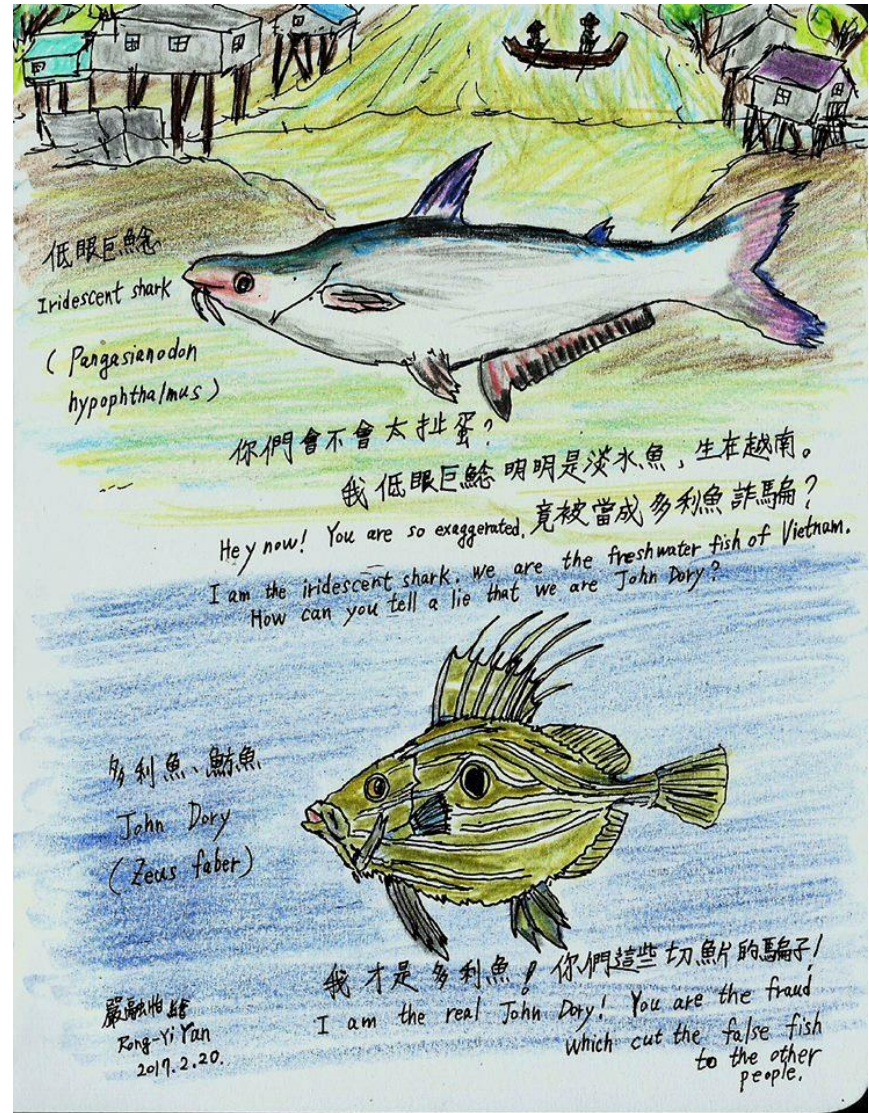 低眼巨鯰
Iridescent shark
(Pangasianodon
hypophthalmus)
你們會不會太扯蛋?
我低眼巨鯰明明是淡水魚,生在越南。
竟被當成多利魚詐騙?
Hey now! You are so exaggerated.
I am the iridescent shark. we are the freshwater fish of Vietnam.
How can you tell a lie that we are John Dory?
多利魚、魴魚
John Dory
(Zeus faber)
我才是多利魚!你們這些切魚片的騙子!
I am the real John Dory! You are the fraud
which cut the false fish
to the other
people.
嚴融怡繪
Rong-Yi Yan
2017.2.20.